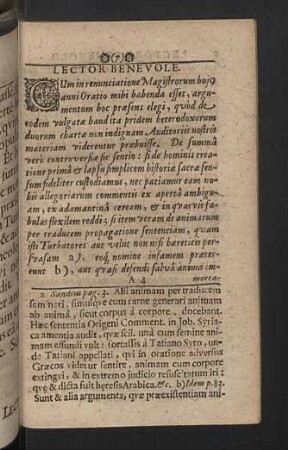 (7)
LECTOR BENEVOLE.
CUm in renunciatione Magistrorum hujꝰ
anni Oratio mihi habenda esset, argu-
mentum hoc præsens elegi, quòd de
eodem vulgata haud ita pridem heterodoxorum
duorum charta non indignam Auditoriis nostris
materiam viderentur præbuisse. De summâ
verò controversiæ sic sentio: si de hominis crea-
tione primâ & lapsu simplicem historiæ sacræ sen-
sum fideliter custodiamus, nec patiamur eam no-
bis allegoriarum commentis ex apertâ ambigu-
am, ex adamantinâ ceream, & in quasvis fa-
bulas flexilem reddi; si item veram de animarum
per traducem propagatione sententiam, quam
isti Turbatores aut velut non nisi hæreticis per-
svasam a), eoq; nomine infamem præter-
eunt b), aut quasi defendi salvâ animæ im-
A 4 morta-
a Sandius pag. 3. Alii animam per traducem
seminari, simulque cum carne generari animam
ab animâ, sicut corpus â corpore, docebant.
Hæc sententia Origeni Comment. in Job. Syria-
ca amentia audit, quæ scil. unâ cum semine ani-
mam effundi vult: fortassis à Tatiano Syro, un-
de Tatiani appellati, qui in oratione adversus
Græcos videtur sentire, animam cum corpore
extingvi, & in extremo judicio resuscitatum iri:
qvę & dicta fuit hæresis Arabica. &c. b) Idem p. 83.
Sunt & alia argumenta, quæ præexistentiam ani-